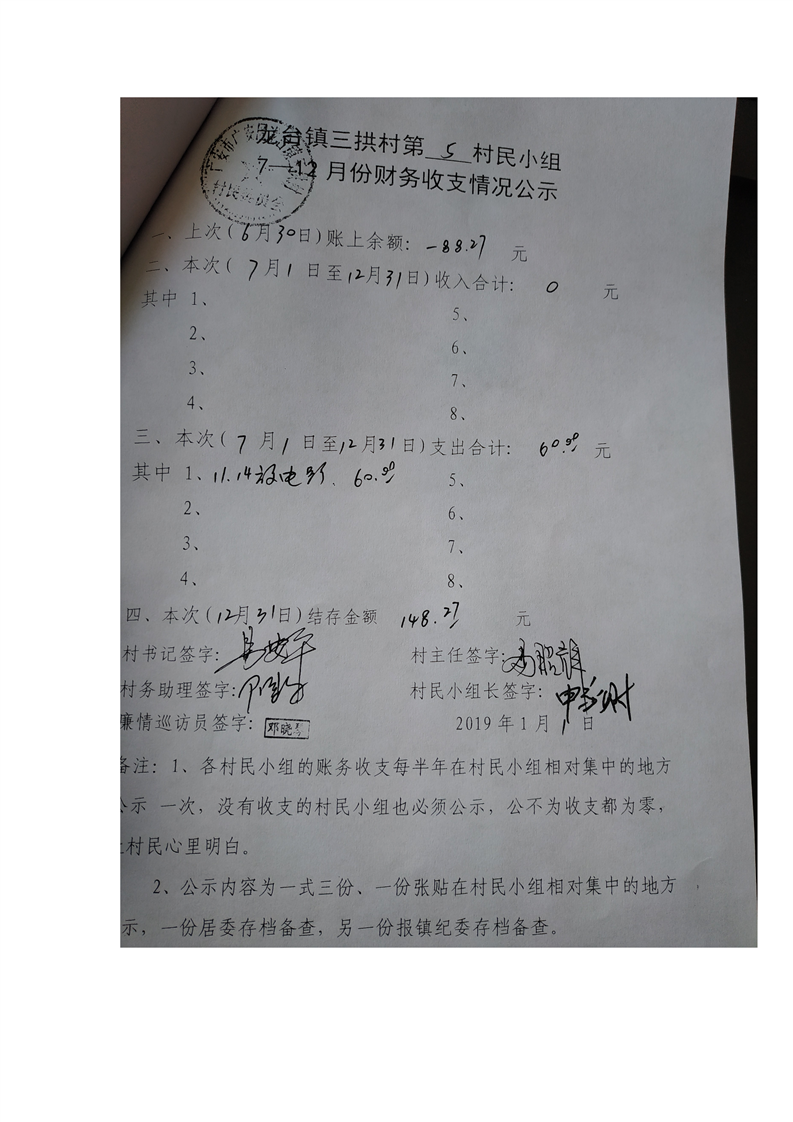 龙台镇三拱村第 5 村民小组
7—12 月份财务收支情况公示
村民委员会
一、上次(6月30日)账上余额: -88.27 元
二、本次( 7月1 日至12月31日)收入合计: 0 元
其中 1、 5、
2、 6、
3、 7、
4、 8、
三、本次( 7 月1 日至12月31日)支出合计: 60.00 元
其中 1、11.14放电影、60.00 5、
2、 6、
3、 7、
4、 8、
四、本次(12月31日)结存金额 148.27 元
村书记签字: 村主任签字:
村务助理签字: 村民小组长签字:
廉情巡访员签字: 邓晓 2019 年 1 月 1 日
备注: 1、各村民小组的账务收支每半年在村民小组相对集中的地方
公示 一次，没有收支的村民小组也必须公示，公不为收支都为零，
村民心里明白。
2、公示内容为一式三份、一份张贴在村民小组相对集中的地方
示，一份居委存档备查，另一份报镇纪委存档备查。